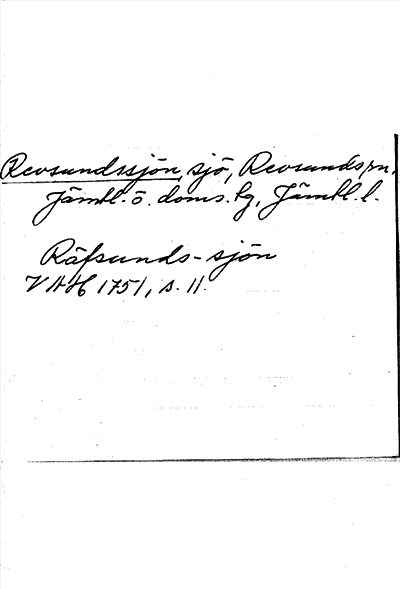 Revsundssjön, sjö, Revsunds sn,
Jämtl. ö. doms. tg, Jämtl. l.
Räfsunds-sjön
VAH 1751, s. 11.